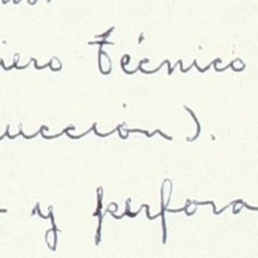 iero Técnico
ucción).
- y perfora